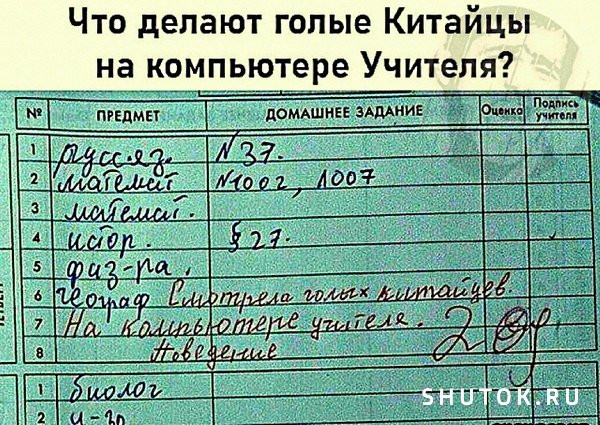 Что делают голые Китайцы
на компьютере Учителя?
№ ПРЕДМЕТ ДОМАШНЕЕ ЗАДАНИЕ Оценка Подпись учителя
1 русс.яз. №37.
2 математ №1002, 1007
3 математ.
4 истор. §27.
5 физ-ра.
6 географ Смотрела голых китайцев.
7 На компьютере учителя.
8 Поведение 2
1 биолог
2 и-зо
SHUTOK.RU